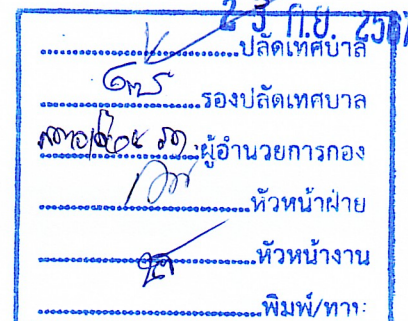 23 ก.ย. 2567
ปลัดเทศบาล
รองปลัดเทศบาล
ผู้อำนวยการกอง
หัวหน้าฝ่าย
หัวหน้างาน
พิมพ์/ทาน